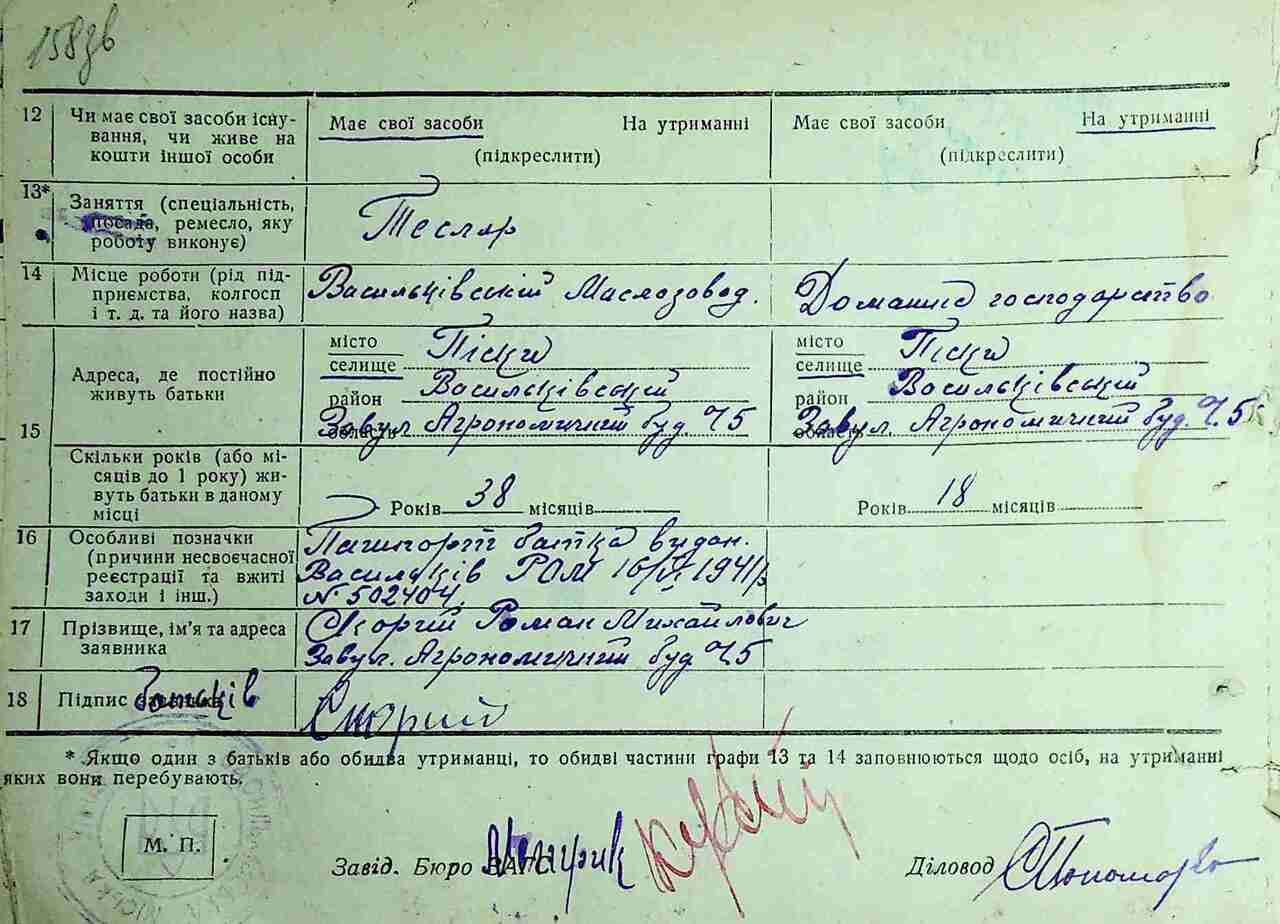 158зв
12 Чи має свої засоби існу-
вання, чи живе на
кошти іншої особи
Має свої засоби На утриманні
(підкреслити)
Має свої засоби На утриманні
(підкреслити)
13* Заняття (спеціальність,
посада, ремесло, яку
роботу виконує)
Тесляр
14 Місце роботи (рід під-
приємства, колгосп
і т. д. та його назва)
Васильківський Маслозовод.
Домашнє господарство
15
Адреса, де постійно
живуть батьки
місто
селище Піски
район Васильківський
область Завул. Агрономичний буд. Ч5
місто
селище Піски
район Васильківський
область Завул. Агрономичний буд. Ч.5
Скільки років (або мі-
сяців до 1 року) жи-
вуть батьки в даному
місці
Років 38 місяців
Років 18 місяців
16 Особливі позначки
(причини несвоєчасної
реєстрації та вжиті
заходи і інш.)
батька видан.
Васильків РОМ 16/VI 1941р
N 502404
17 Прізвище, ім'я та адреса
заявника
Скорий Роман Михайлович
Завул. Агрономичний буд Ч5
18 Підпис батьків
Скорий
* Якщо один з батьків або обидва утриманці, то обидві частини графи 13 та 14 заповнюються щодо осіб, на утриманні
яких вони перебувають.
М. П.
Завід. Бюро ЗАГС
Діловод